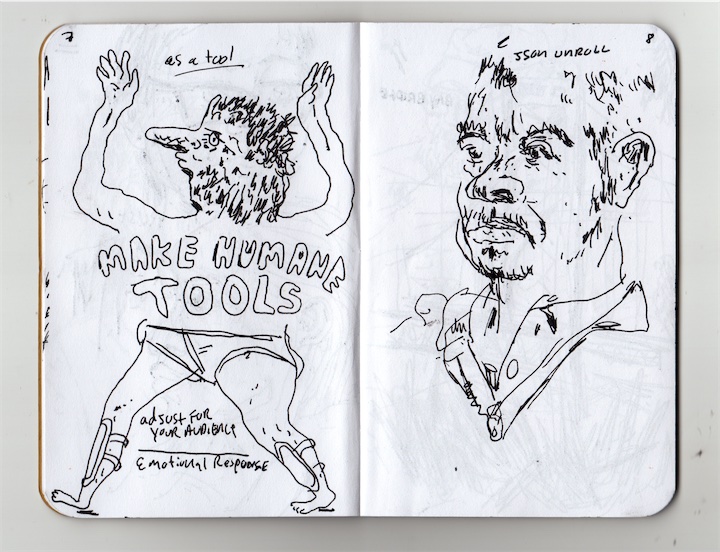 7
as a tool
MAKE HUMANE
TOOLS
adjust FOR
YOUR AUDIENCE
Emotional Response
8
JSON UNROLL